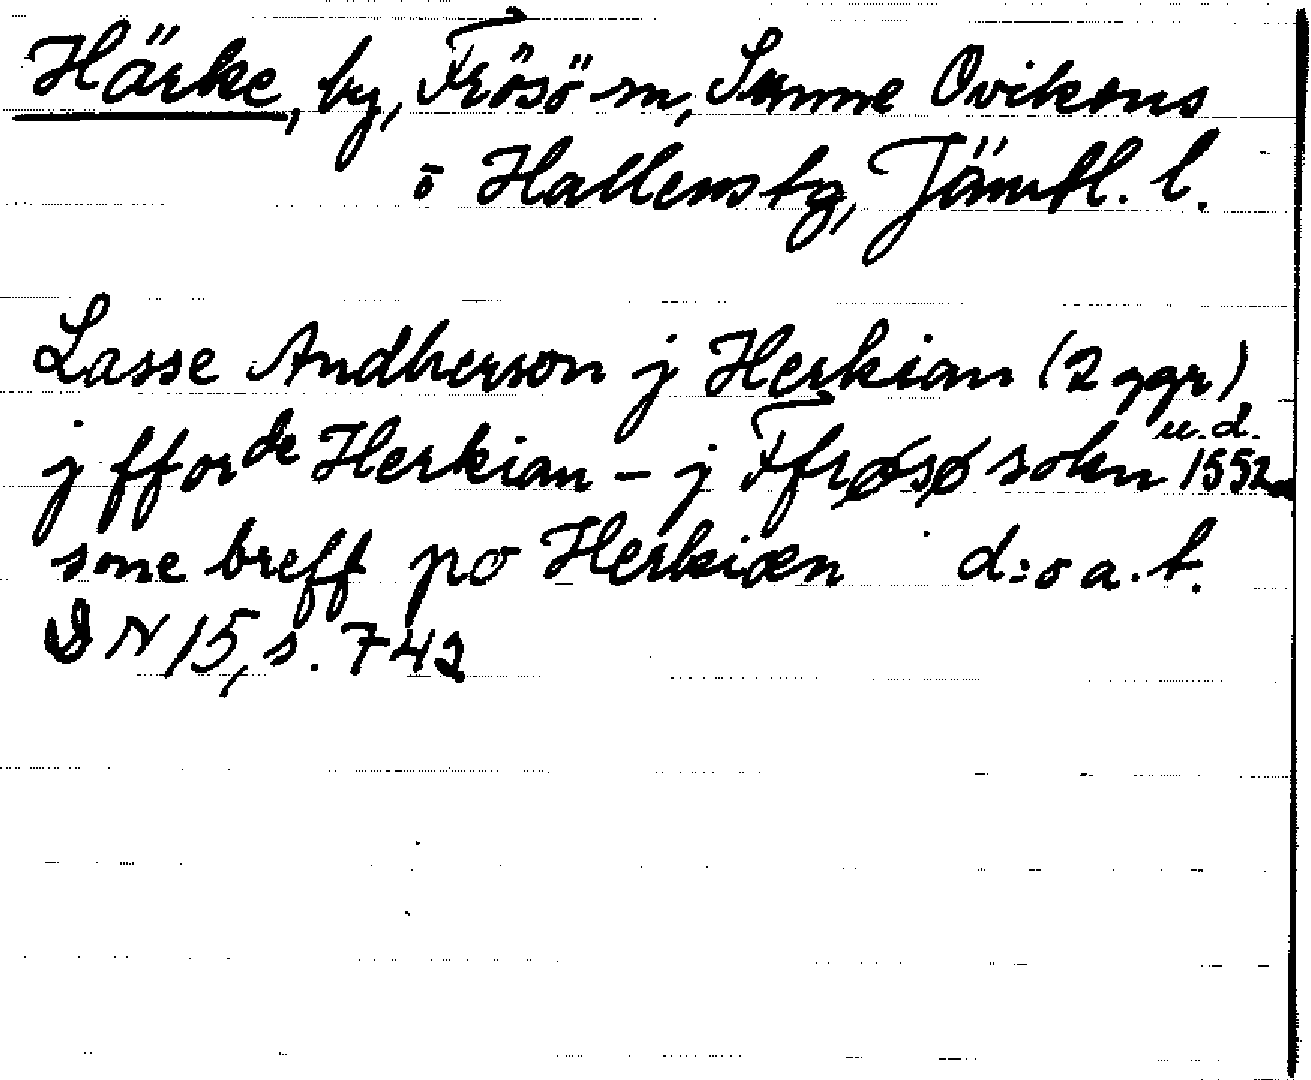 Härke, by, Frösö sn, Sunne Ovikens
o Hallens tg, Jämtl. l.
Lasse Andherson j Herkian (2 ggr)
j fforde Herkian - j Ffrøsø sokn u.d. 1552
sone breff po Herkiæn d:o a. st.
DN 15, s. 742